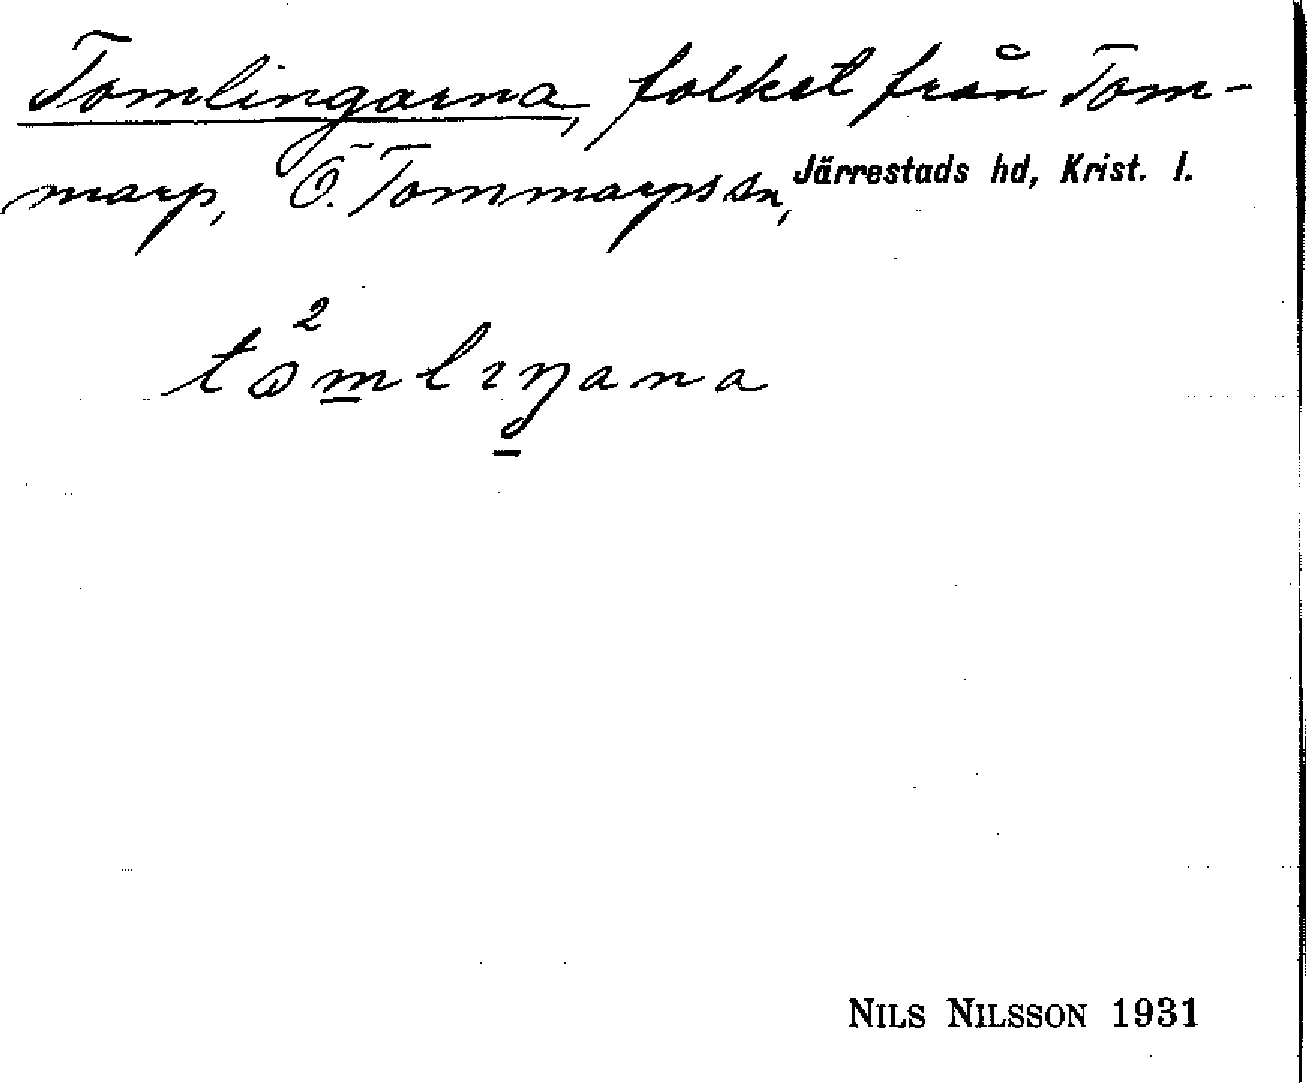 Tomlingarna, folket från Tom-
marp, Ö. Tommarps sn, Järrestads hd, Krist. l.
2
tɷmlıŋana
NILS NILSSON 1931